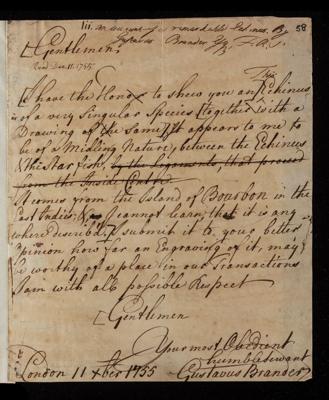 iii. An account of a remarkable Echinus, By
58
Gustavus Brander Esq. F.R.S.
[Gentlemen,
Read Dec. 11. 1755.
This
I have the Honor to shew you an Echinus
of a very Singular Species [together with a
Drawing of the Same] It appears to me to
be of a Midling Nature, between the Echinus
& the Star fish, by the ligaments, that proceed
from the Inside Center
it comes from the Island of Bourbon in the
East Indies, & I cannot learn, that it is any
where describ'd, I submit it to your better
Opinion how far an Engraving of it, may
be worthy of a place in our Transactions
I am with all possible Respect
[Gentlemen
Your most Obedient
humble servant
London 11 Xber 1755
Gustavus Brander]